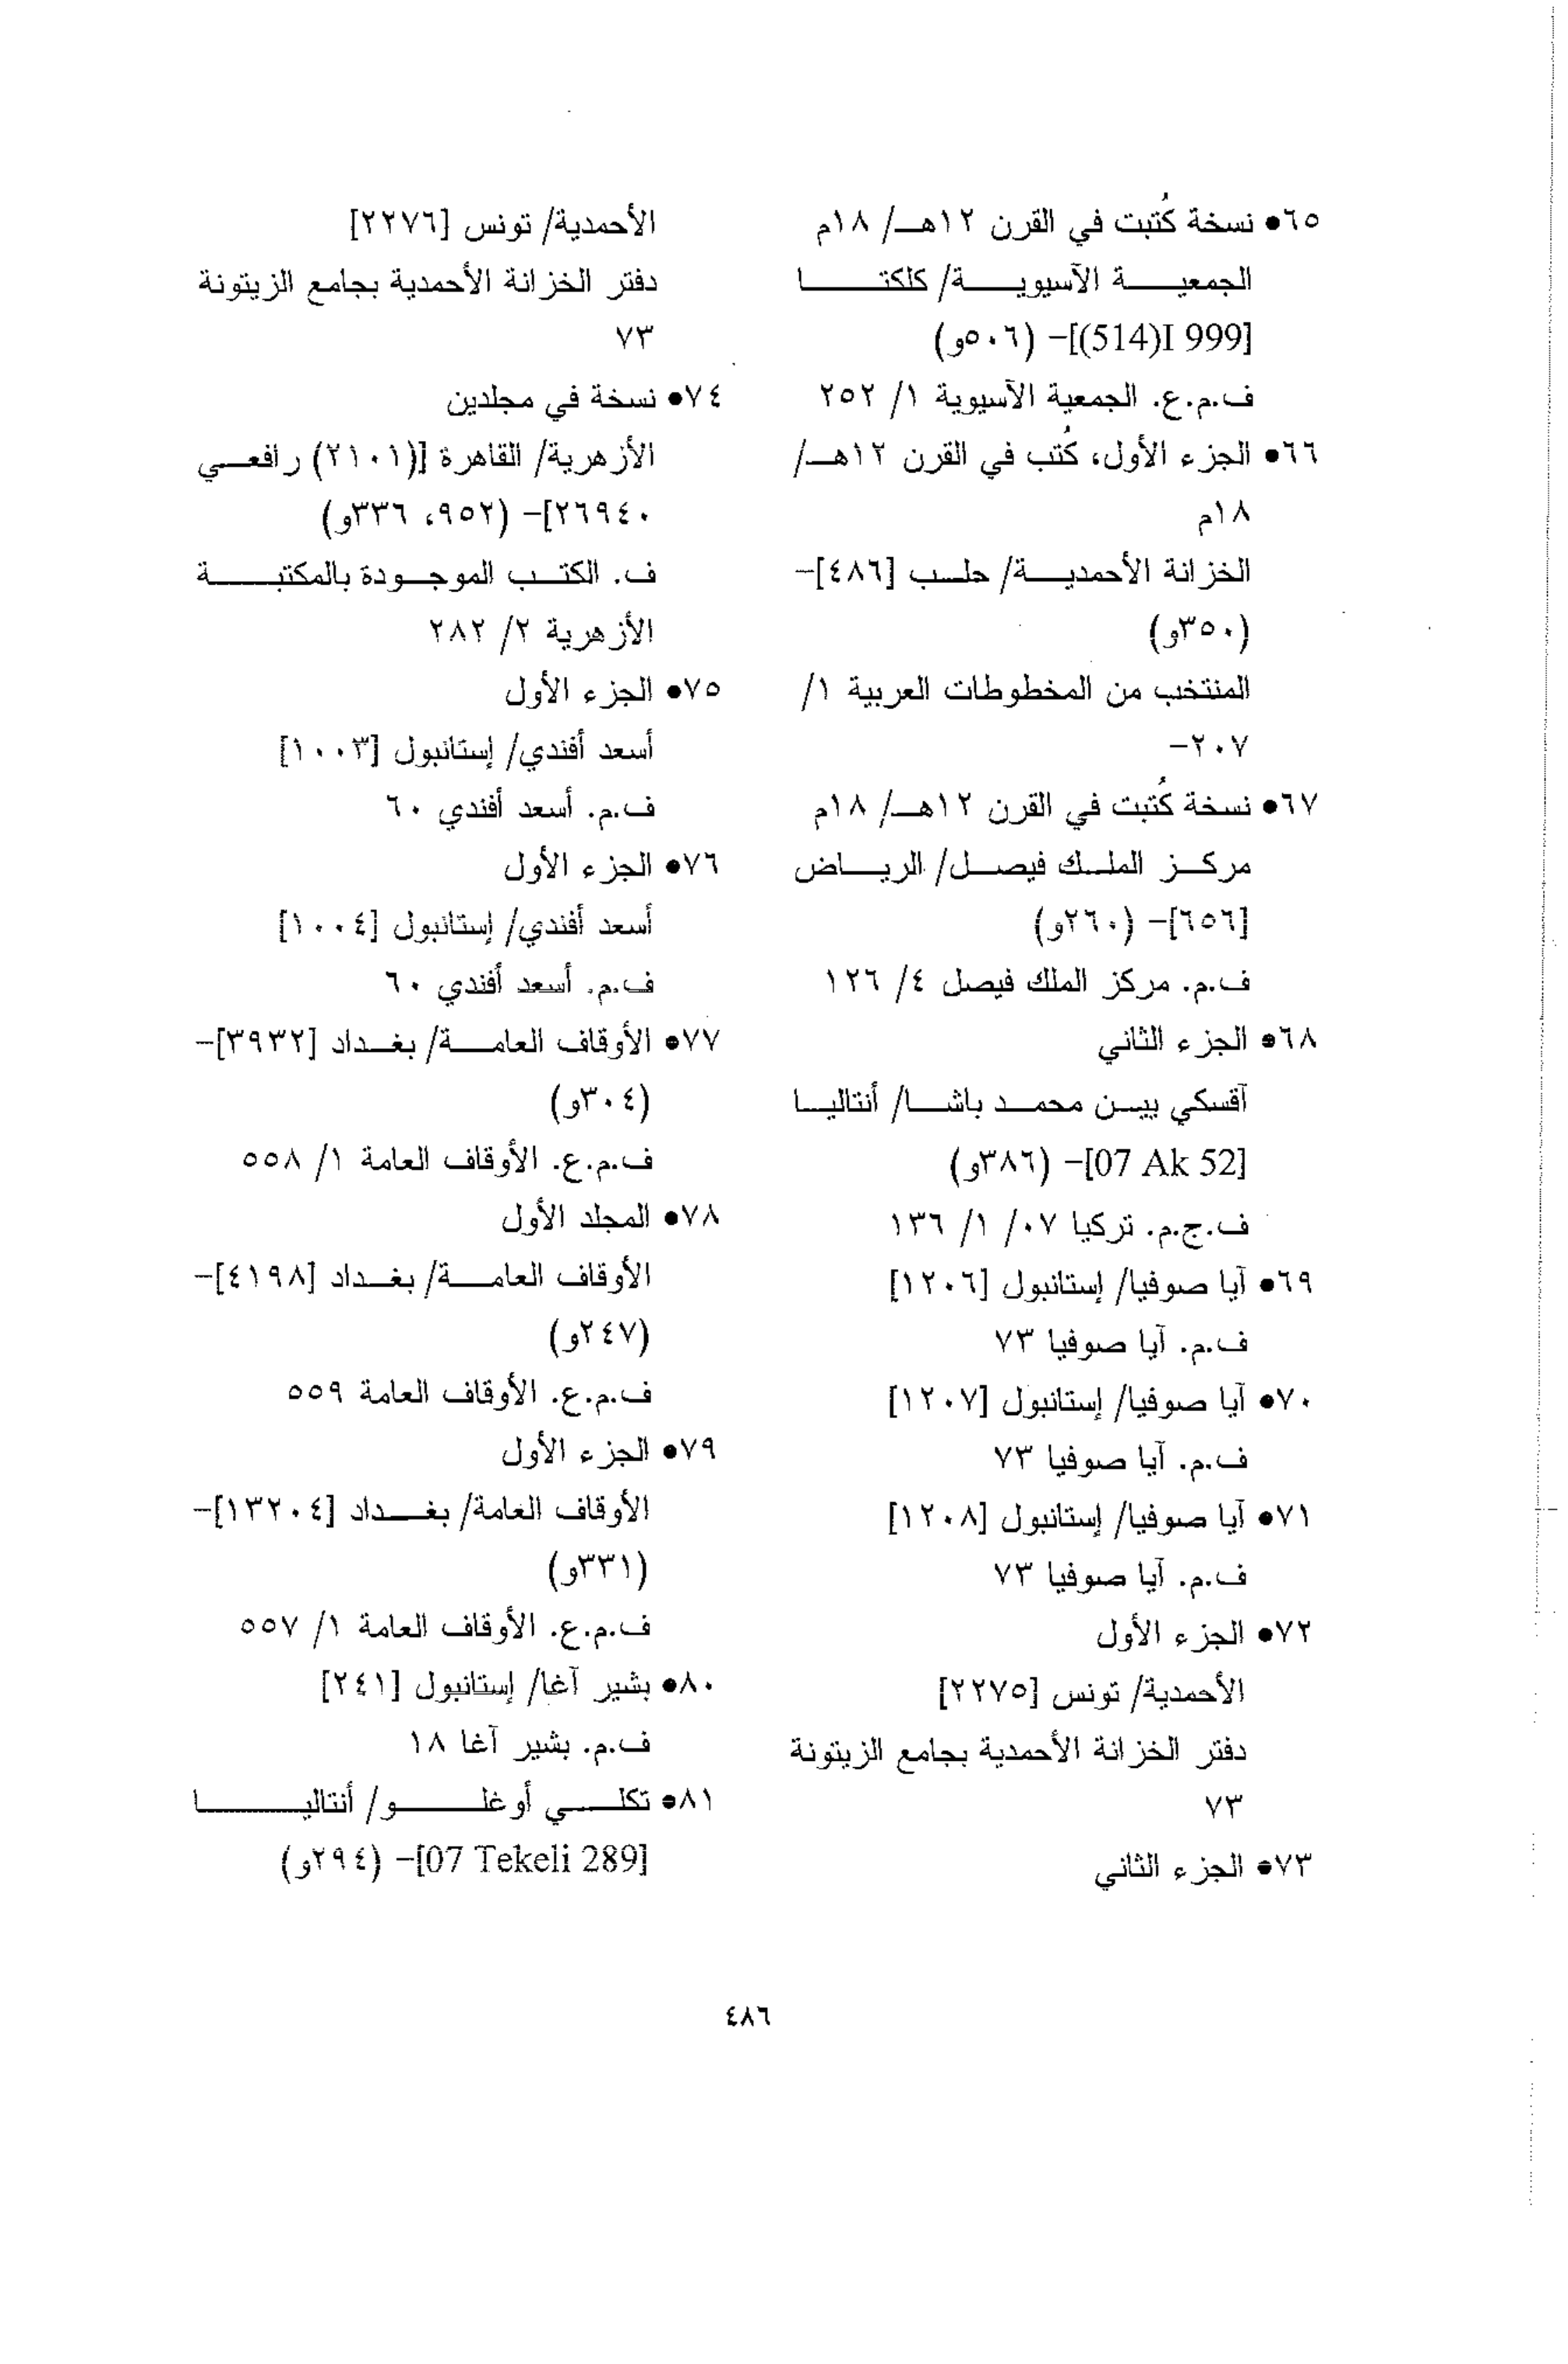 ٦٥● نسخة كُتبت في القرن ١٢هـ/ ١٨م
الجمعية الآسيوية/ كلكتا
[(514)I 999]– (٥٠٦و)
ف.م.ع. الجمعية الآسيوية ١/ ٢٥٢
٦٦● الجزء الأول، كُتب في القرن ١٢هـ/
١٨م
الخزانة الأحمدية/ حلب [٤٨٦]–
(٣٥٠و)
المنتخب من المخطوطات العربية ١/
٢٠٧–
٦٧● نسخة كُتبت في القرن ١٢هـ/ ١٨م
مركز الملك فيصل/ الرياض
[٦٥٦]– (٢٦٠و)
ف.م. مركز الملك فيصل ٤/ ١٢٦
٦٨● الجزء الثاني
آقسكي بيين محمد باشا/ أنتاليا
[07 Ak 52]– (٣٨٦و)
ف.ج.م. تركيا ٠٧/ ١/ ١٣٦
٦٩● آيا صوفيا/ إستانبول [١٢٠٦]
ف.م. آيا صوفيا ٧٣
٧٠● آيا صوفيا/ إستانبول [١٢٠٧]
ف.م. آيا صوفيا ٧٣
٧١● آيا صوفيا/ إستانبول [١٢٠٨]
ف.م. آيا صوفيا ٧٣
٧٢● الجزء الأول
الأحمدية/ تونس [٢٢٧٥]
دفتر الخزانة الأحمدية بجامع الزيتونة
٧٣
٧٣● الجزء الثاني
الأحمدية/ تونس [٢٢٧٦]
دفتر الخزانة الأحمدية بجامع الزيتونة
٧٣
٧٤● نسخة في مجلدين
الأزهرية/ القاهرة [(٢١٠١) رافعي
٢٦٩٤٠]– (٩٥٢، ٣٣٦و)
ف. الكتب الموجودة بالمكتبة
الأزهرية ٢/ ٢٨٢
٧٥● الجزء الأول
أسعد أفندي/ إستانبول [١٠٠٣]
ف.م. أسعد أفندي ٦٠
٧٦● الجزء الأول
أسعد أفندي/ إستانبول [١٠٠٤]
ف.م. أسعد أفندي ٦٠
٧٧● الأوقاف العامة/ بغداد [٣٩٣٢]–
(٣٠٤و)
ف.م.ع. الأوقاف العامة ١/ ٥٥٨
٧٨● المجلد الأول
الأوقاف العامة/ بغداد [٤١٩٨]–
(٢٤٧و)
ف.م.ع. الأوقاف العامة ٥٥٩
٧٩● الجزء الأول
الأوقاف العامة/ بغداد [١٣٢٠٤]–
(٣٣١و)
ف.م.ع. الأوقاف العامة ١/ ٥٥٧
٨٠● بشير آغا/ إستانبول [٢٤١]
ف.م. بشير آغا ١٨
٨١● تكلي أوغلو/ أنتاليا
[07 Tekeli 289]– (٢٩٤و)
٤٨٦